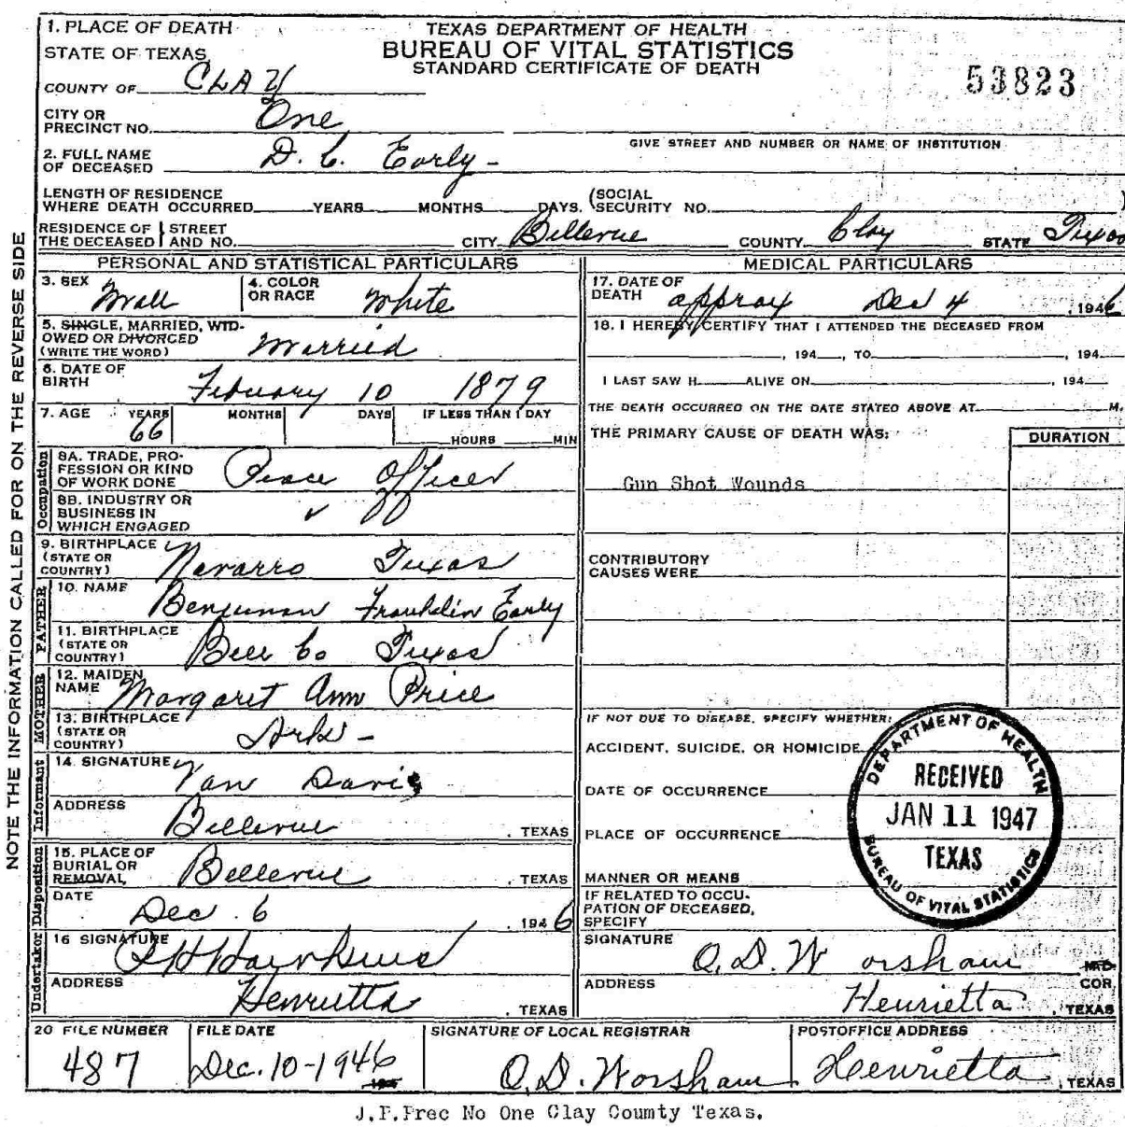 NOTE THE INFORMATION CALLED FOR ON THE REVERSE SIDE
1. PLACE OF DEATH
STATE OF TEXAS
COUNTY OF CLAY
CITY OR
PRECINCT NO. One
TEXAS DEPARTMENT OF HEALTH
BUREAU OF VITAL STATISTICS
STANDARD CERTIFICATE OF DEATH
53823
GIVE STREET AND NUMBER OR NAME OF INSTITUTION
2. FULL NAME
OF DECEASED D. C. Early -
LENGTH OF RESIDENCE
WHERE DEATH OCCURRED YEARS MONTHS DAYS. (SOCIAL
SECURITY NO. )
RESIDENCE OF THE DECEASED STREET AND NO. CITY Bellevue COUNTY Clay STATE Texas
PERSONAL AND STATISTICAL PARTICULARS
3. SEX Mail
4. COLOR
OR RACE White
5. SINGLE, MARRIED, WID-
OWED OR DIVORCED
(WRITE THE WORD) Married
6. DATE OF
BIRTH Febuary 10 1879
7. AGE YEARS MONTHS DAYS IF LESS THAN 1 DAY
66 HOURS MIN
Occupation
8A. TRADE, PRO-
FESSION OR KIND
OF WORK DONE Peace Officer
8B. INDUSTRY OR
BUSINESS IN
WHICH ENGAGED
9. BIRTHPLACE
(STATE OR
COUNTRY) Navarro Texas
FATHER
10. NAME Benjuman Franklin Early
11. BIRTHPLACE
(STATE OR
COUNTRY) Bell Co Texas
MOTHER
12. MAIDEN
NAME Margaret Ann Price
13. BIRTHPLACE
(STATE OR
COUNTRY) Ark -
Informant
14. SIGNATURE Van Davis
ADDRESS
Bellevue , TEXAS
Disposition
15. PLACE OF
BURIAL OR
REMOVAL Bellevue , TEXAS
DATE
Dec. 6 , 1946
Undertaker
16 SIGNATURE
ADDRESS
Henrietta , TEXAS
MEDICAL PARTICULARS
17. DATE OF
DEATH approx Dec 4 , 1946
18. I HEREBY CERTIFY THAT I ATTENDED THE DECEASED FROM
, 194 , TO , 194
I LAST SAW H ALIVE ON , 194
THE DEATH OCCURRED ON THE DATE STATED ABOVE AT M.
THE PRIMARY CAUSE OF DEATH WAS: DURATION
Gun Shot Wounds
CONTRIBUTORY
CAUSES WERE
IF NOT DUE TO DISEASE, SPECIFY WHETHER:
ACCIDENT, SUICIDE, OR HOMICIDE
DATE OF OCCURRENCE
PLACE OF OCCURRENCE
MANNER OR MEANS
IF RELATED TO OCCU-
PATION OF DECEASED,
SPECIFY
DEPARTMENT OF HEALTH
RECEIVED
JAN 11 1947
TEXAS
BUREAU OF VITAL STATISTICS
SIGNATURE
O. D. Worsham M.D.
COR.
ADDRESS
Henrietta , TEXAS
20 FILE NUMBER
487
FILE DATE
Dec. 10-1946
SIGNATURE OF LOCAL REGISTRAR
O. D. Worsham
POSTOFFICE ADDRESS
Henrietta , TEXAS
J.P.Prec No One Clay County Texas.